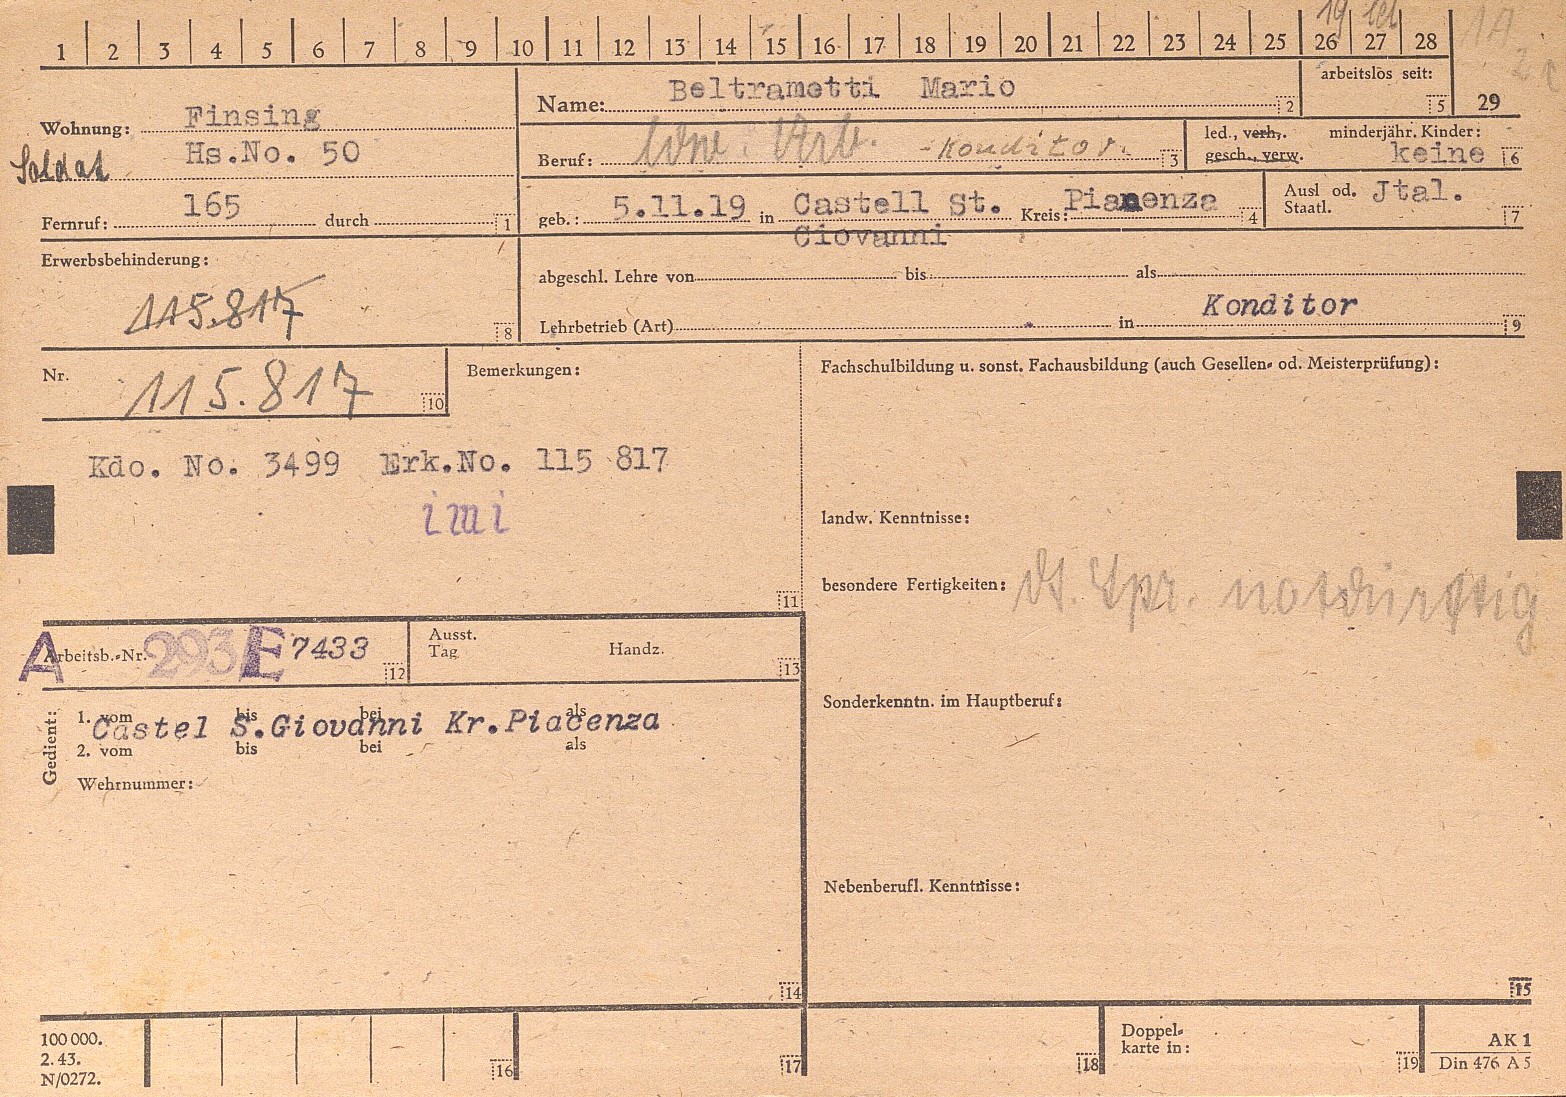 1 2 3 4 5 6 7 8 9 10 11 12 13 14 15 16 17 18 19 20 21 22 23 24 25 26 27 28
19
1A
Wohnung: Finsing
Soldat Hs.No. 50
Fernruf: 165 durch 1
Name: Beltrametti Mario 2
arbeitslos seit: 5 29
Beruf: Arb. -Konditor. 3
led., verh., minderjähr. Kinder:
gesch., verw. keine 6
geb.: 5.11.19 in Castell St. Kreis: Piacenza 4
Giovanni
Ausl od. Jtal.
Staatl. 7
Erwerbsbehinderung:
115.817 8
abgeschl. Lehre von bis als
Konditor
Lehrbetrieb (Art) in 9
Nr. 115.817 10
Bemerkungen:
Kdo. No. 3499 Erk.No. 115 817
imi
11
Fachschulbildung u. sonst. Fachausbildung (auch Gesellen- od. Meisterprüfung):
landw. Kenntnisse:
besondere Fertigkeiten: dt. Spr. notdürftig
Sonderkenntn. im Hauptberuf:
Nebenberufl. Kenntnisse:
15
A Arbeitsb.-Nr. 293 E 7433 12
Ausst.
Tag Handz. 13
Gedient:
1. vom bis bei als
Castel S.Giovanni Kr.Piacenza
2. vom bis bei als
Wehrnummer:
14
100 000.
2. 43.
N/0272.
16 17 18
Doppel-
karte in: 19
AK 1
Din 476 A 5